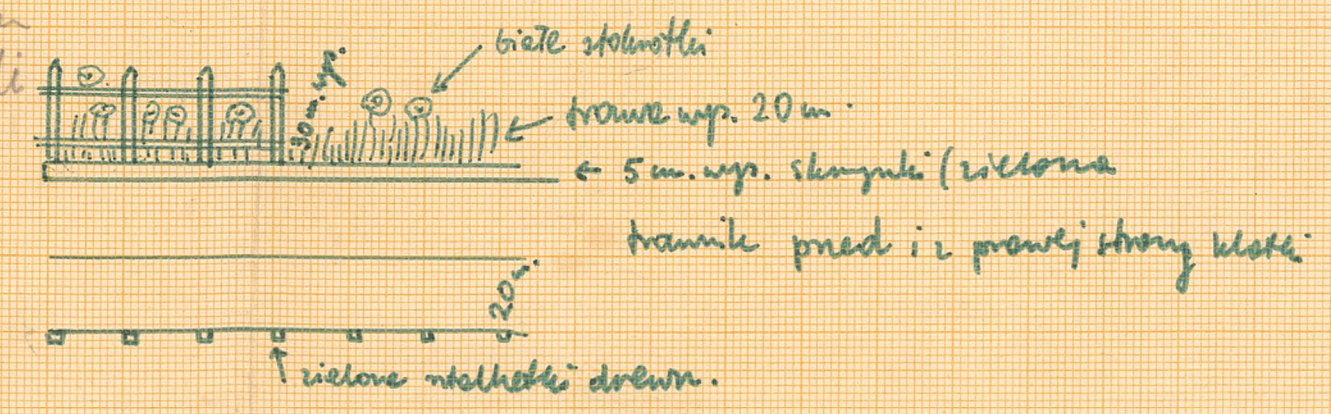 białe stokrotki
30 m. wys.
trawa wys. 20 m.
← 5 m. wys. skrzynki (zielona
trawnik przed i z prawej strony klatki
20 m.
zielone sztachetki drewn.